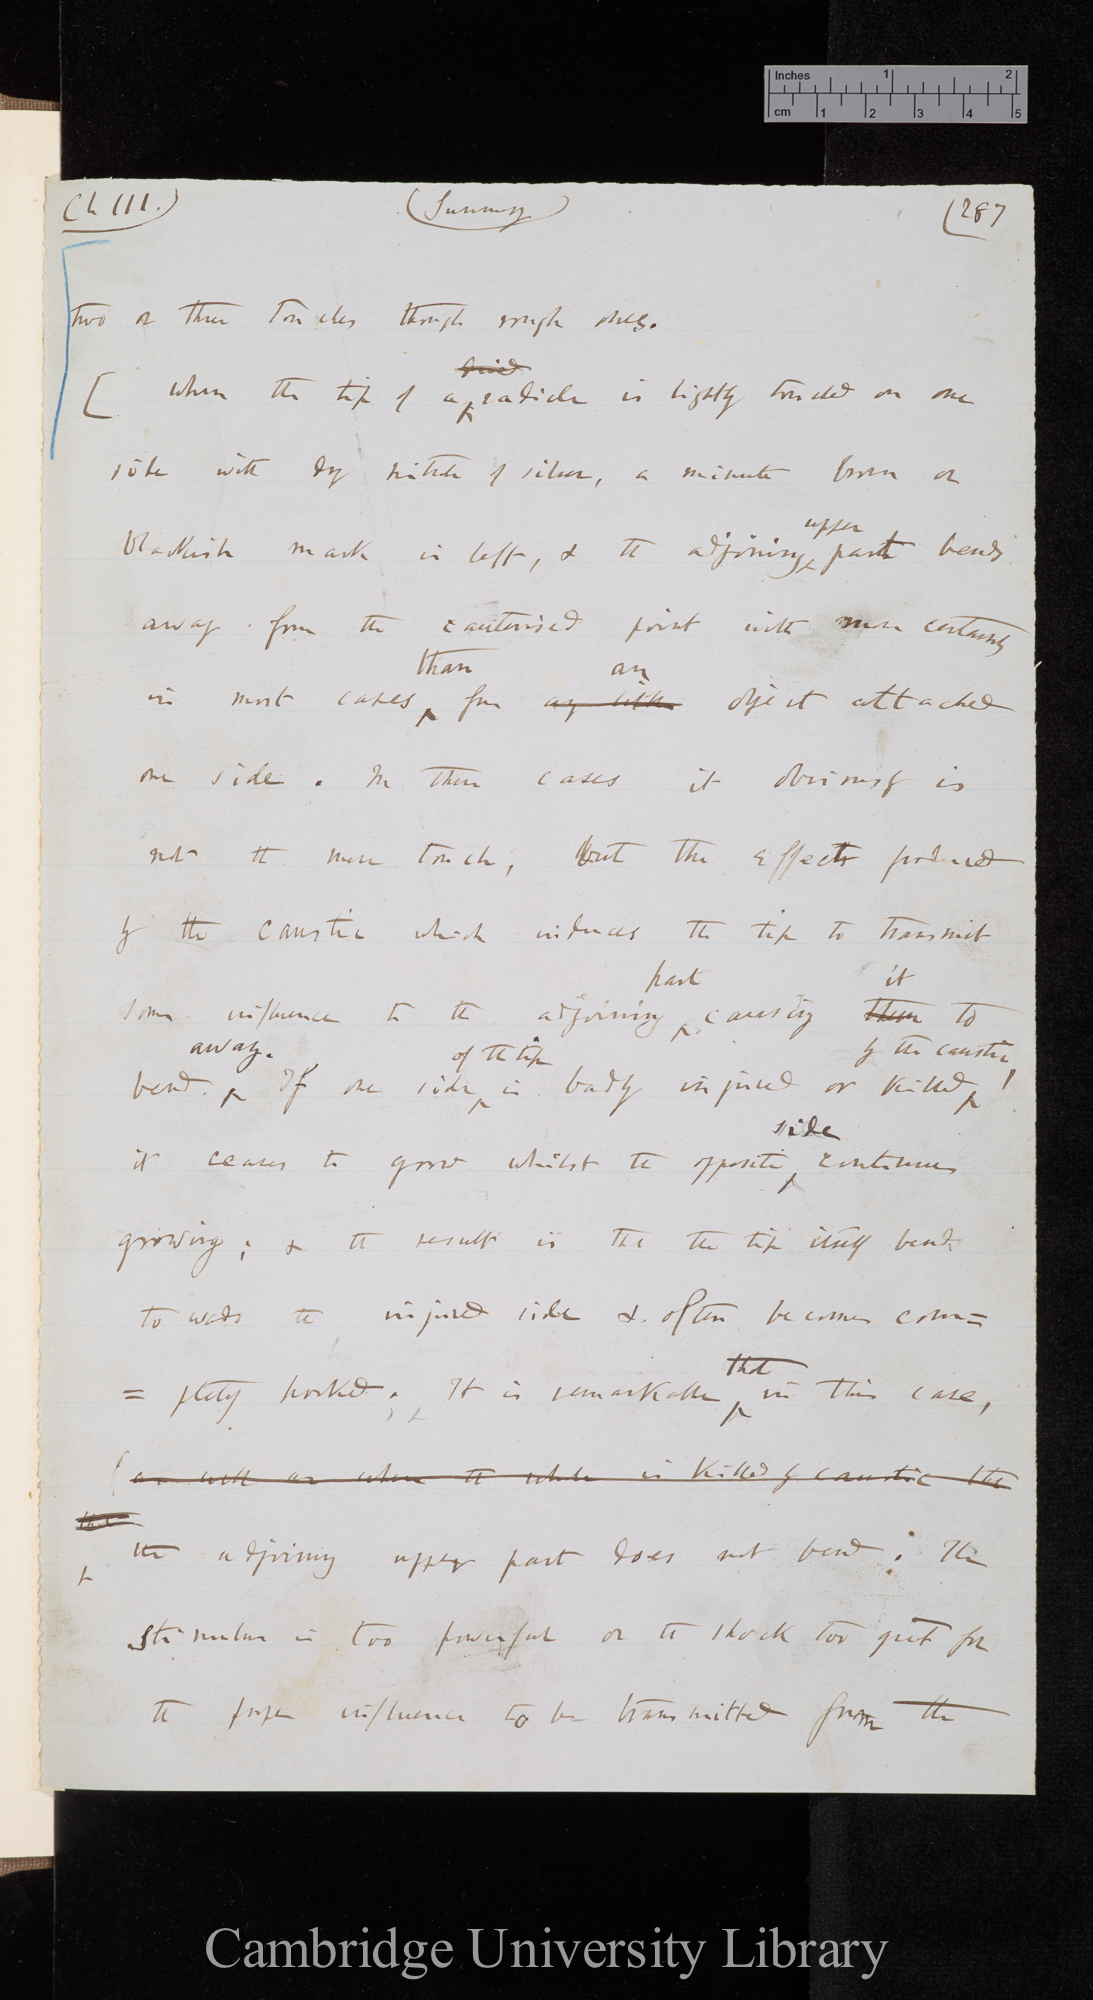 Inches 1 2
cm 1 2 3 4 5
Ch III.) (Summary) (287
two or three touches though rough ones.
[ When the tip of a radicle is lightly touched on one
side with dry nitrate of silver, a minute brown or
upper
blackish mark is left, & the adjoining part bends
away from the cauterised point with more certainty
than an
in most cases, from any object attached
one side. In these cases it obviously is
not the mere touch, but the effects produced
by the caustic which induces the tip to transmit
part it
some influence to the adjoining causing them to
away. of the tip by the caustic,
bend. If one side is badly injured or killed
side
it ceases to grow whilst the opposite continues
growing; & the result is that the tip itself bends
towards the injured side & often becomes com=
that
=pletely hooked; It is remarkable in this case,
(as well as when the whole is killed by caustic the
that
the adjoining upper part does not bend. The
stimulus is too powerful or the shock too great for
the proper influence to be transmitted from the
Cambridge University Library